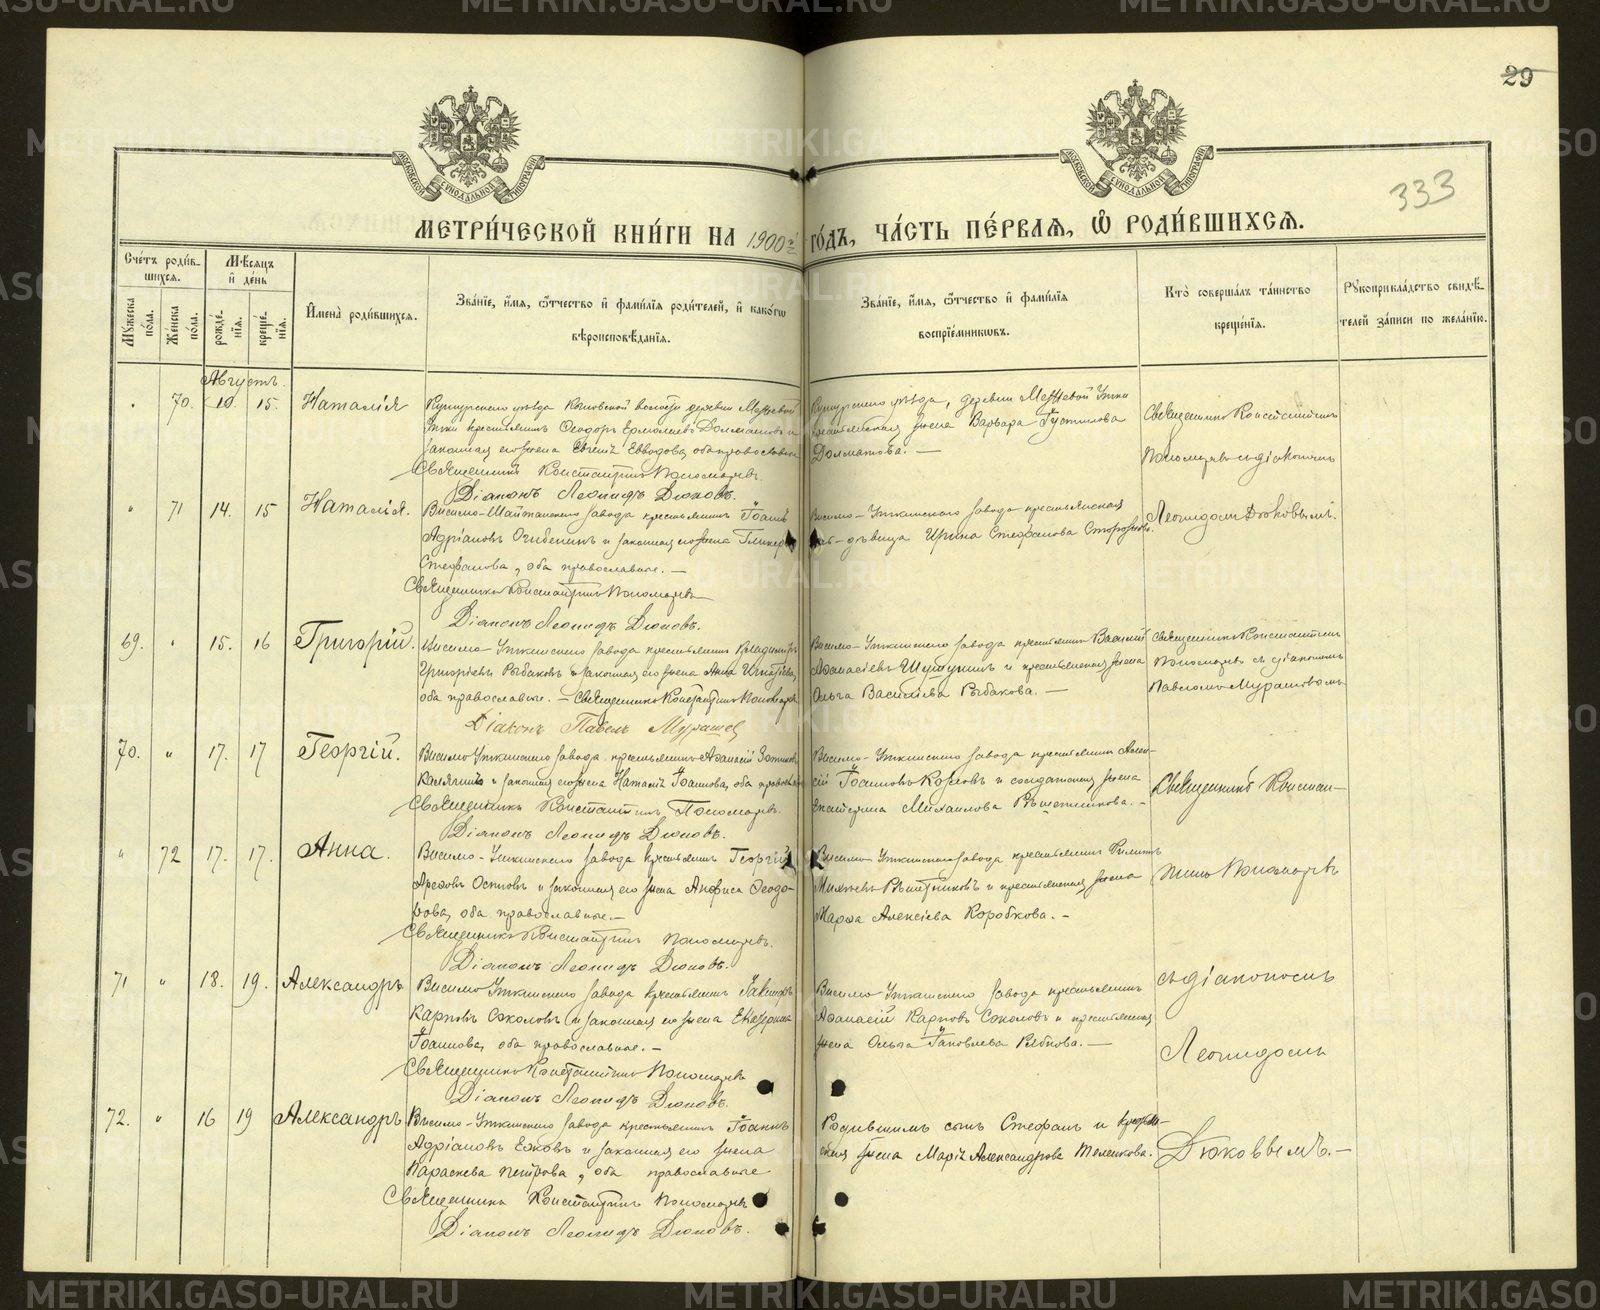 29
333
МЕТРИ́ЧЕСКОЙ КНИ́ГИ НА 1900й ГО́ДЪ, ЧА́СТЬ ПЕ́РВАЯ, Ѡ҆ РОДИ́ВШИХСЯ.
Сче́тъ роди́в-
шихся.
Му́жеска по́ла.
Же́нска по́ла.
Мѣ́сяцъ
и҆ де́нь
рожде́-
нїя.
креще́-
нїя.
И҆мена̀ роди́вшихся.
Зва́нїе, и҆́мя, ѻ҆́тчество и҆ фами́лїя роди́телей, и҆ како́гѡ
вѣроисповѣ́данїя.
Зва́нїе, и҆́мя, ѻ҆́тчество и҆ фами́лїя
воспрїе́мниковъ.
Кто̀ соверша́лъ та́инство
креще́нїя.
Рꙋкоприкла́дство свидѣ́-
телей за́писи по жела́нїю.
Августъ.
70. 10. 15. Наталія
Кунгурскаго уѣзда Кыновской волости деревни Межевой
Утки крестьянинъ Ѳеодоръ Ермолаевъ Долматовъ и
законная его жена Евдокова, оба православные
Священникъ Константинъ Пономаревъ
Діаконъ Леонидъ Дюковъ.
Кунгурскаго уѣзда, деревни Межевой Утки
крестьянская жена Варвара Густилова
Долматова. —
Священникъ Константинъ
Пономаревъ съ діакономъ
" 71 14. 15 Наталія.
Висимо-Шайтанскаго завода крестьянинъ Іоаннъ
Адріановъ Огибенинъ и законная его жена Гликерія
Стефанова, оба православные. —
Священникъ Константинъ Пономаревъ
Діаконъ Леонидъ Дюковъ.
Висимо-Уткинскаго завода крестьянская
дѣвица Ирина Стефанова
Леонидомъ Дюковымъ.
69. " 15. 16 Григорій.
Висимо-Уткинскаго завода крестьянинъ Владиміръ
Григорьевъ Рыбаковъ и законная его жена Анна Игнатіева,
оба православные. — Священникъ Константинъ Пономаревъ
Діаконъ Павелъ Мурашев
Висимо-Уткинскаго завода крестьянинъ Василій
Аѳанасіевъ и крестьянская жена
Ольга Василіева Рыбакова. —
Священникъ Константинъ
Пономаревъ съ діакономъ
Павломъ Мурашовымъ
70. " 17. 17 Георгій.
Висимо-Уткинскаго завода крестьянинъ Аѳанасій
и законная его жена Наталія Іоаннова, оба православные
Священникъ Константинъ Пономаревъ.
Діаконъ Леонидъ Дюковъ.
Висимо-Уткинскаго завода крестьянинъ Алек-
сій Іоанновъ Козловъ и солдатская жена
Екатерина Михаилова Рѣшетникова. —
Священникъ Констан-
" 72 17. 17. Анна.
Висимо-Уткинскаго завода крестьянинъ Георгій
Осиповъ и законная его жена Анфиса Ѳеодо-
рова, оба православные. —
Священникъ Константинъ Пономаревъ.
Діаконъ Леонидъ Дюковъ.
Висимо-Уткинскаго завода крестьянинъ Филиппъ
Рѣшетниковъ и крестьянская жена
Марѳа Алексіева Коробкова. —
тинъ Пономаревъ
71 " 18. 19. Александръ
Висимо-Уткинскаго завода крестьянинъ
Карповъ Соколовъ и законная его жена Екатерина
Іоаннова, оба православные. —
Священникъ Константинъ Пономаревъ
Діаконъ Леонидъ Дюковъ.
Висимо-Уткинскаго завода крестьянинъ
Аѳанасій Карповъ Соколовъ и крестьянская
жена Ольга Іаковлева Рябкова. —
съ діакономъ
Леонидомъ
72. " 16 19 Александръ
Висимо-Уткинскаго завода крестьянинъ Іоаннъ
Адріановъ Ежовъ и законная его жена
Параскева Петрова, оба православные
Священникъ Константинъ Пономаревъ
Діаконъ Леонидъ Дюковъ.
Родившимъ сынъ Стефанъ и крестьян-
ская жена Марія Александрова Теленкова.
Дюковымъ. —
METRIKI.GASO-URAL.RU